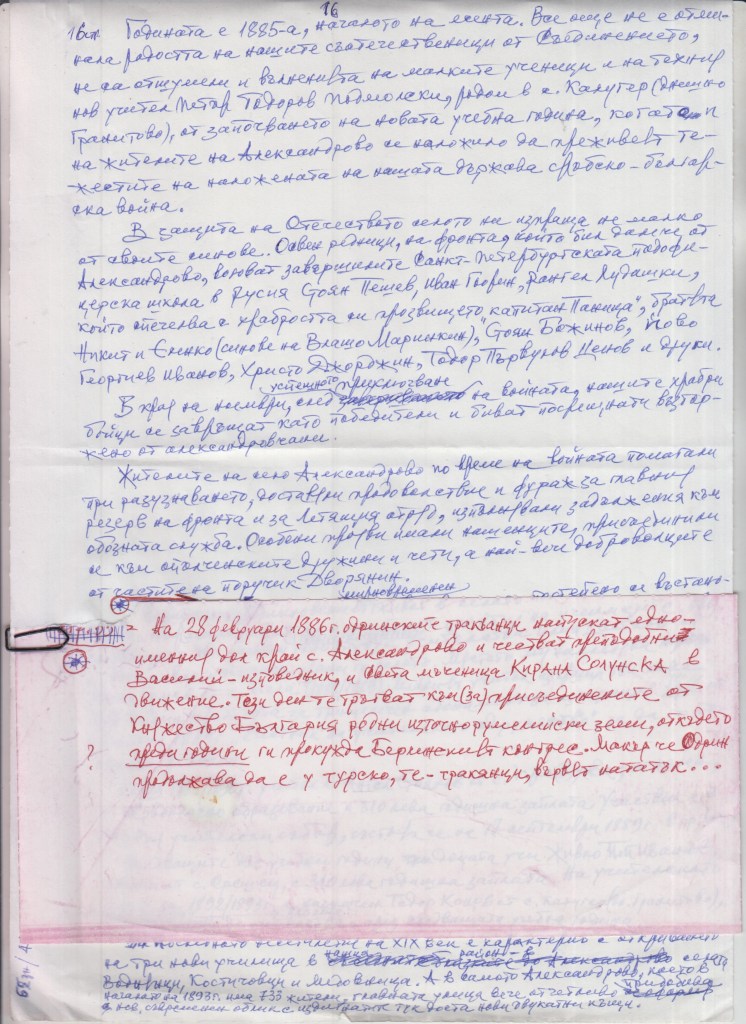 16
16ст Годината е 1885-а, началото на есента. Все още не е отшумяла
радостта на нашите съотечественици от Съединението,
не са отшумели и вълненията на малките ученици и на техния
нов учител Петър Тодоров Подмолски, родом в с. Калугер (днешно
Гранитово), от започването на новата учебна година, когато и
на жителите на Александрово се наложило да преживеят те-
жестите на наложената на нашата държава сръбско-българ-
ска война.
В защита на Отечеството селото ни изпраща не малко
от своите синове. Освен редници, на фронта, който бил далече от
Александрово, воюват завършилите Санкт-Петербургската подофи-
церска школа в Русия Стоян Пешев, Иван Гюрин, Рангел Лудашки,
който спечелва с храбростта си прозвището "капитан Паница", братята
Никит и Ененко (синове на Влашо Маринкин), Стоян Божинов, Йово
Георгиев Иванов, Христо Джорджин, Тодор Първулов Ценов и други.
успешното приключване
В края на ноември, след на войната, нашите храбри
бойци се завръщат като победители и биват посрещнати възтор-
жено от александровчани.
Жителите на село Александрово по време на войната помагали
при разузнаването, доставяли продоволствие и фураж за главния
резерв на фронта и за Летящия отряд, изпълнявали задължения към
обозната служба. Особени прояви имали нашенците, присъединили
се към опълченските дружини и чети, а най-вече доброволците
от частите на поручик Дворянин.
мирновременен
постепено се въстано-
= На 28 февруари 1886г. одринските тракийци напускат едно-
именния дол край с. Александрово и честват преподобния
Василий-изповедник, и Света мъченица Кирана Солунска в
движение. Този ден те тръгват към (за) присъединените от
Княжество България родни източнорумелийски земи, откъдето
? преди години ги прокужда Берлинският конгрес. Макар че Одрин
продължава да е у турско, те - тракийци, вървят нататък...
на XIX век е характерно с откриването
на три нови училища в селата
Водници, Костичовци и Медовница. А в самото Александрово, което в
началото на 1893г. има 733 жители, главната улица вече отчетливо придобива
нов, современен облик с доста нови двукатни къщи.